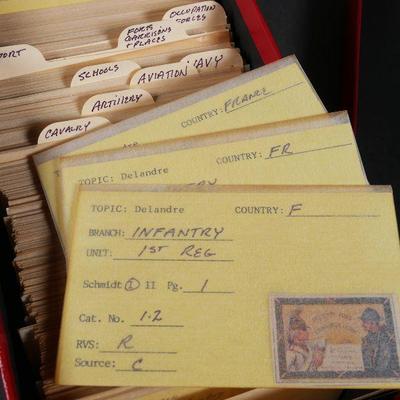 OCCUPATION
FORCES
FORTS
GARRISONS
& PLACES
PORT
SCHOOLS
AVIATION
AVY
ARTILLERY
CAVALRY
COUNTRY: FRANCE
TOPIC: Delandre COUNTRY: FR
TOPIC: Delandre COUNTRY: F
BRANCH: INFANTRY
UNIT: 1ST REG
Schmidt I II Pg. 1
Cat. No. 1-2
RVS: R
Source: C